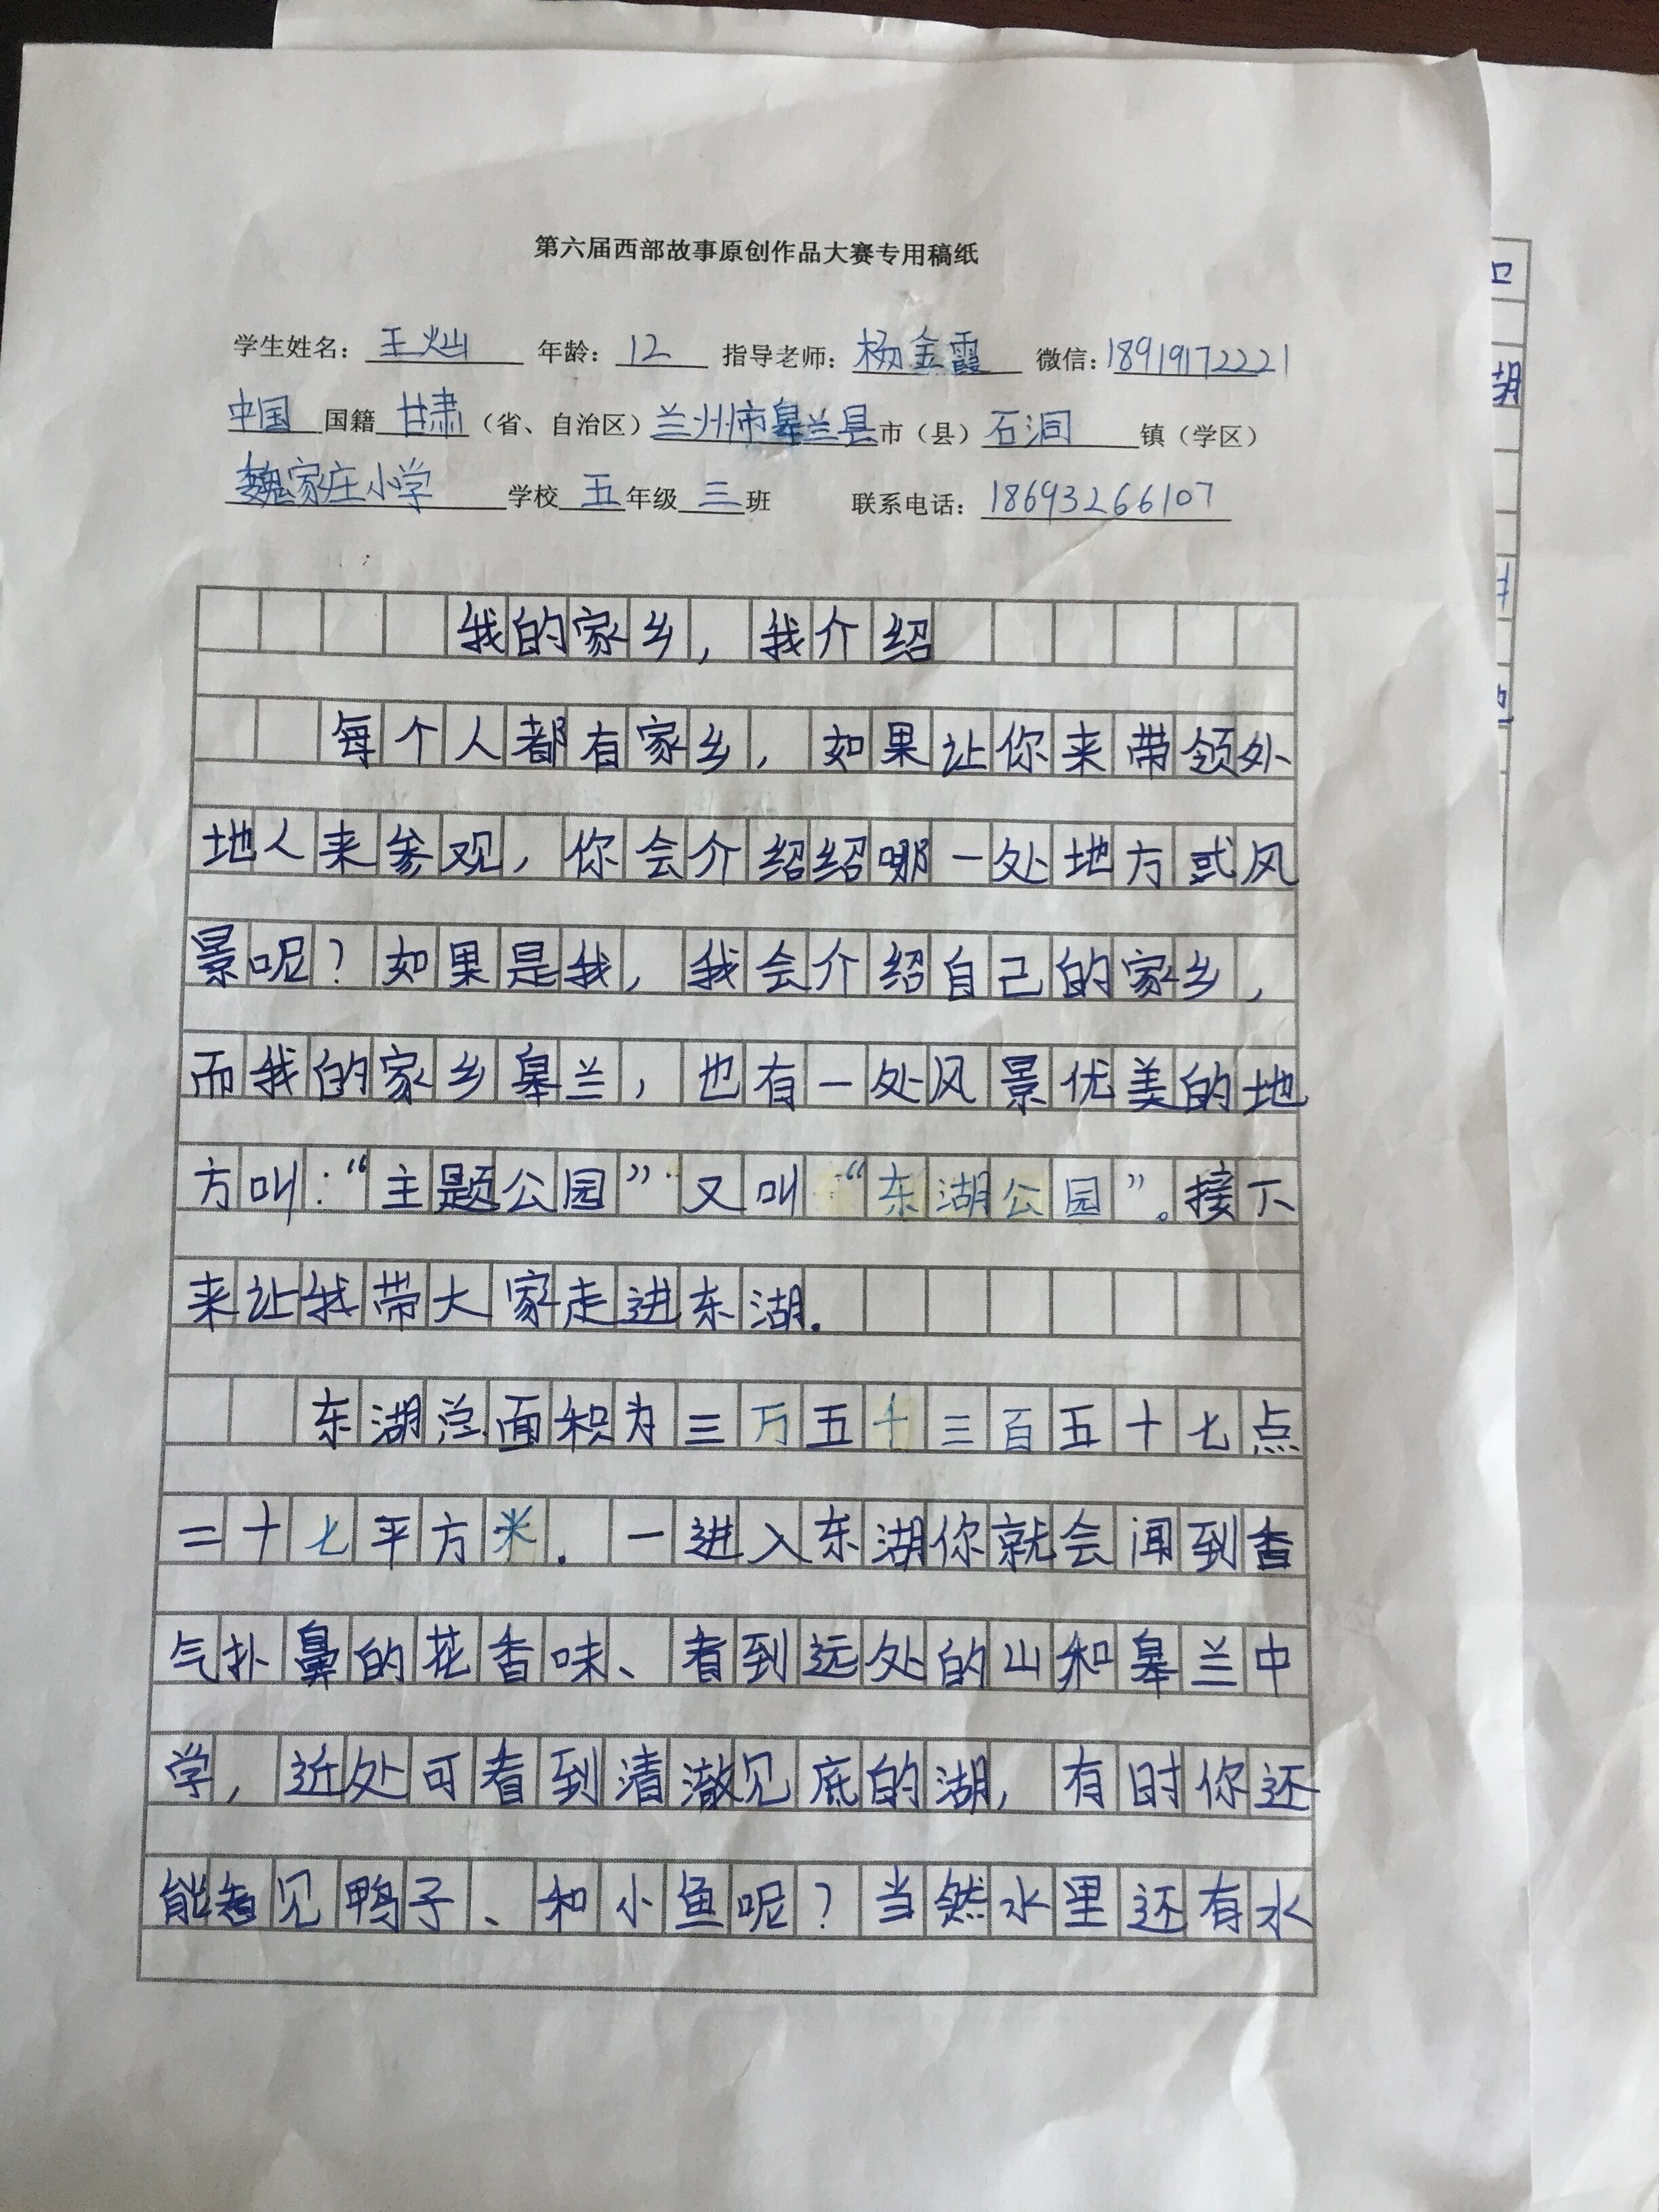 第六届西部故事原创作品大赛专用稿纸
学生姓名：王灿 年龄：12 指导老师：杨金霞 微信：18919172221
中国 国籍 甘肃（省、自治区）兰州市皋兰县市（县）石洞 镇（学区）
魏家庄小学 学校 五年级 三班 联系电话：18693266107
我的家乡，我介绍
每个人都有家乡，如果让你来带领外
地人来参观，你会介绍绍哪一处地方或风
景呢？如果是我，我会介绍自己的家乡，
而我的家乡皋兰，也有一处风景优美的地
方叫：“主题公园”又叫“东湖公园”。接下
来让我带大家走进东湖.
东湖总面积为三万五千三百五十七点
二十七平方米.一进入东湖你就会闻到香
气扑鼻的花香味、看到远处的山和皋兰中
学，近处可看到清澈见底的湖，有时你还
能看见鸭子、和小鱼呢？当然水里还有水